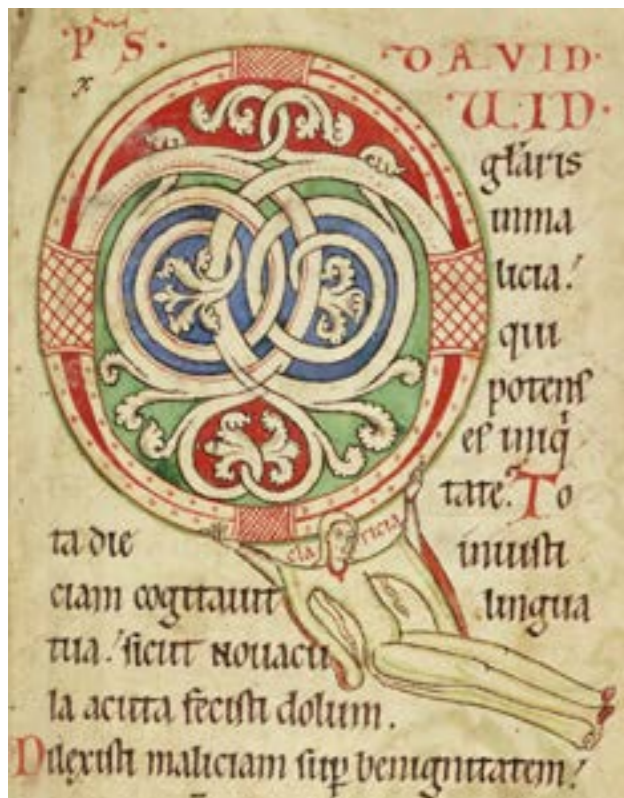 ·PS· DAVID·
U·ID·
głaris
inma
licia!
qui
potens
es iniq̍
tate. To
CLA RICIA
ta die iniusti
ciam cogitauit lingua
tua! sicut nouacu
la acuta fecisti dolum.
Dilexisti maliciam sup̱ benignitatem!